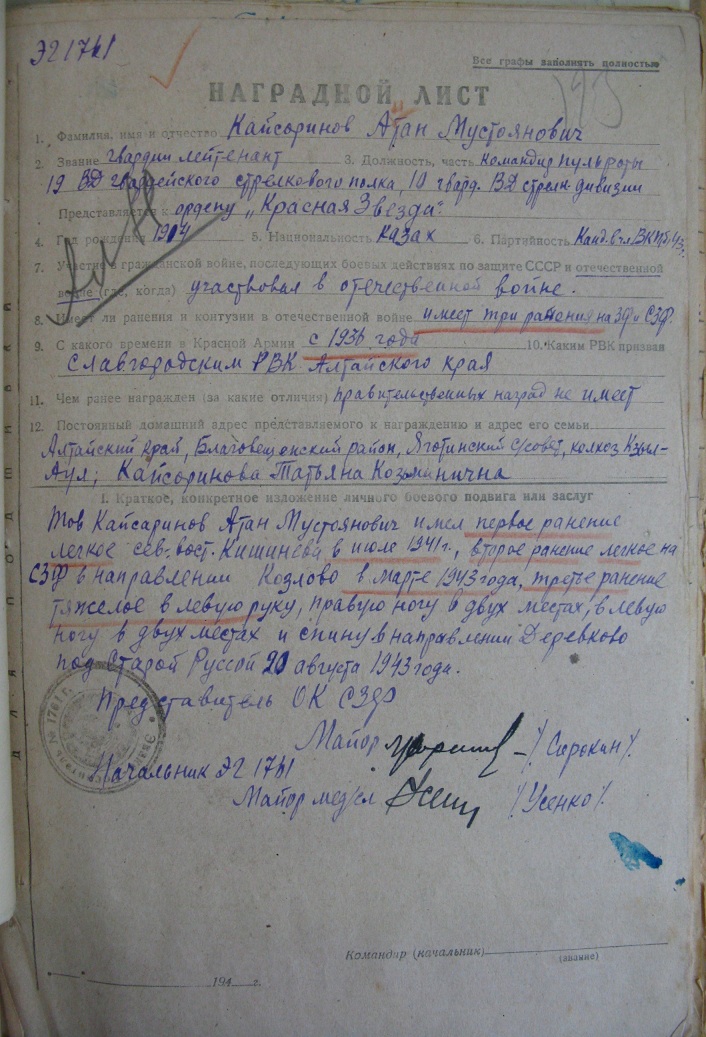 ЭГ 1761
Все графы заполнять полностью
193
НАГРАДНОЙ ЛИСТ
1. Фамилия, имя и отчество Кайсаринов Атан Мустоянович
2. Звание гвардии лейтенант 3. Должность, часть командир пульроты
19 ВД гвардейского стрелкового полка, 10 гвард. ВД стрелк. дивизии
Представляется к ордену „Красная Звезда".
4. Год рождения 1914 5. Национальность казах 6. Партийность Канд. в чл. ВКП(б) 43г.
7. Участие в гражданской войне, последующих боевых действиях по защите СССР и отечественной
войне (где, когда) участвовал в отечественной войне.
8. Имеет ли ранения и контузии в отечественной войне имеет три ранения на ЗФ и СЗФ.
9. С какого времени в Красной Армии с 1936 года 10. Каким РВК призван
Славгородским РВК Алтайского края
11. Чем ранее награжден (за какие отличия) правительственных наград не имеет
12. Постоянный домашний адрес представляемого к награждению и адрес его семьи
Алтайский край, Благовещенский район, Яготинский с/совет, колхоз Кзыл-
Аул; Кайсаринова Татьяна Козминична
I. Краткое, конкретное изложение личного боевого подвига или заслуг
Тов Кайсаринов Атан Мустоянович имел первое ранение
легкое сев-вост. Кишинева в июле 1941 г., второе ранение легкое на
СЗФ в направлении Козлово в марте 1943 года, третье ранение
тяжелое в левую руку, правую ногу в двух местах, в левую
ногу в двух местах и спину в направлении Деревково
под Старой Руссой 20 августа 1943 года.
Представитель ОК СЗФ
Майор /Сорокин/
Начальник ЭГ 1761
Майор мед/сл /Усенко/
Командир (начальник)
(звание)
194 г.